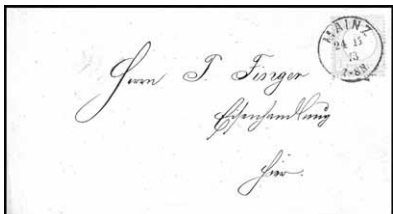 MAINZ
24 11
73
7-8 N
Herrn J. Finger
Eisenhandlung
Hier.